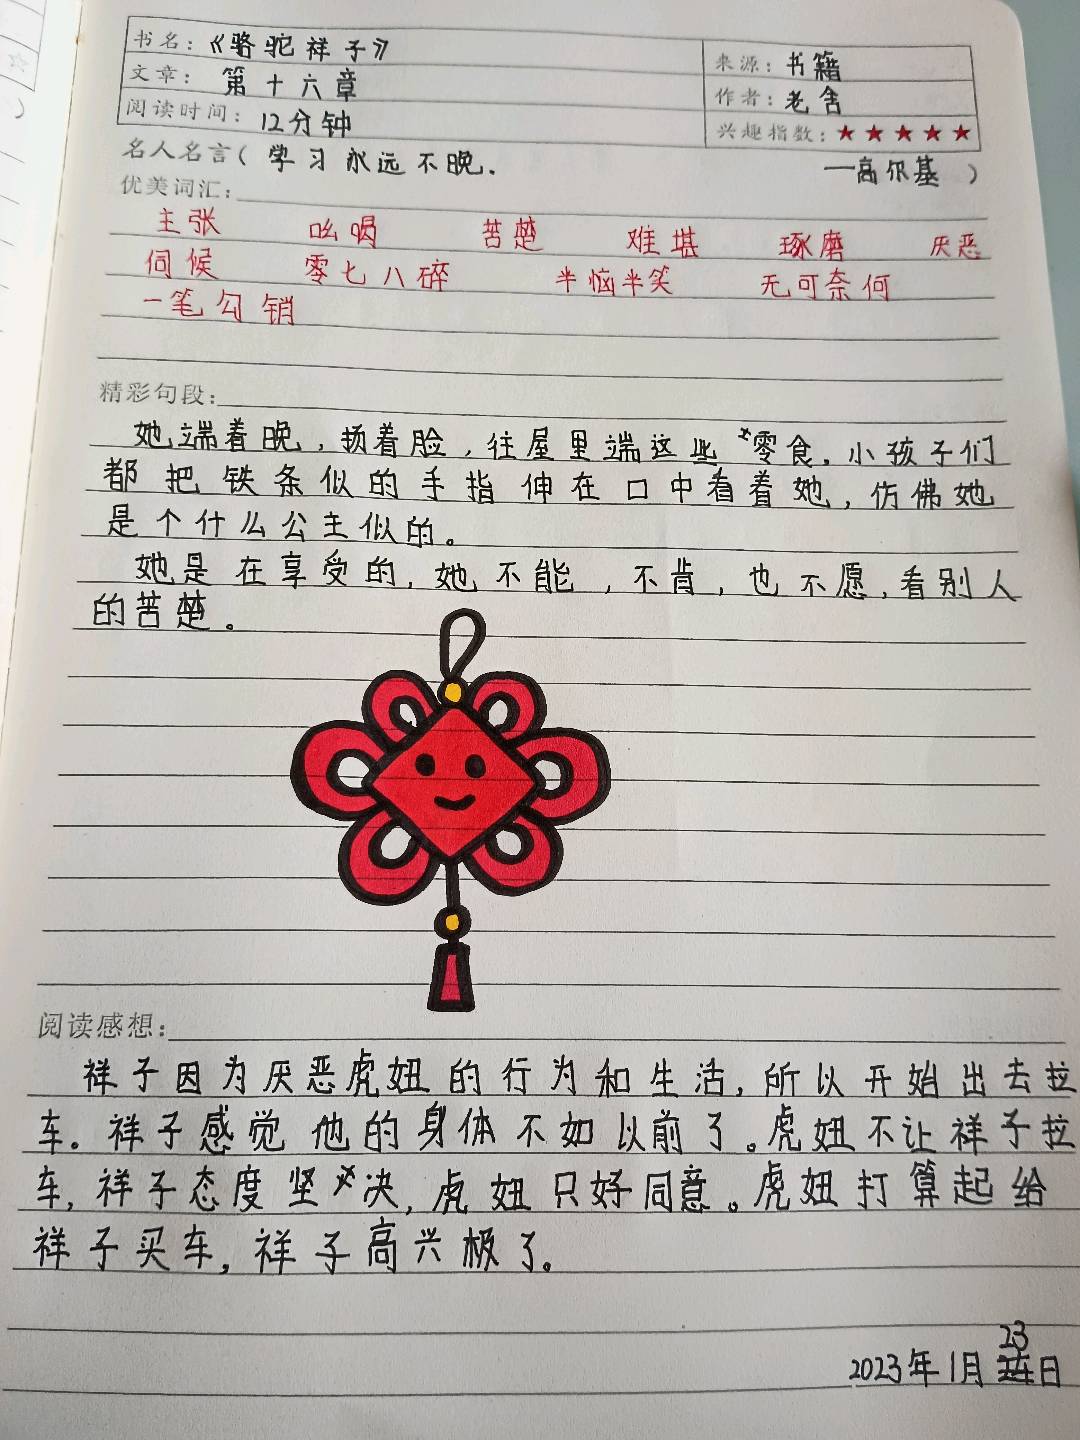 书名：《骆驼祥子》 来源：书籍
文章： 第十六章 作者：老舍
阅读时间：12分钟 兴趣指数：★★★★★
名人名言（学习永远不晚． —高尔基 ）
优美词汇：
主张 吆喝 苦楚 难堪 琢磨 厌恶
伺候 零七八碎 半恼半笑 无可奈何
一笔勾销
精彩句段：
她端着晚，扬着脸，往屋里端这些零食，小孩子们
都把铁条似的手指伸在口中看着她，仿佛她
是个什么公主似的。
她是在享受的，她不能，不肯，也不愿，看别人
的苦楚。
阅读感想：
祥子因为厌恶虎妞的行为和生活，所以开始出去拉
车。祥子感觉他的身体不如以前了。虎妞不让祥子拉
车，祥子态度坚决，虎妞只好同意。虎妞打算起给
祥子买车，祥子高兴极了。
2023年1月23日